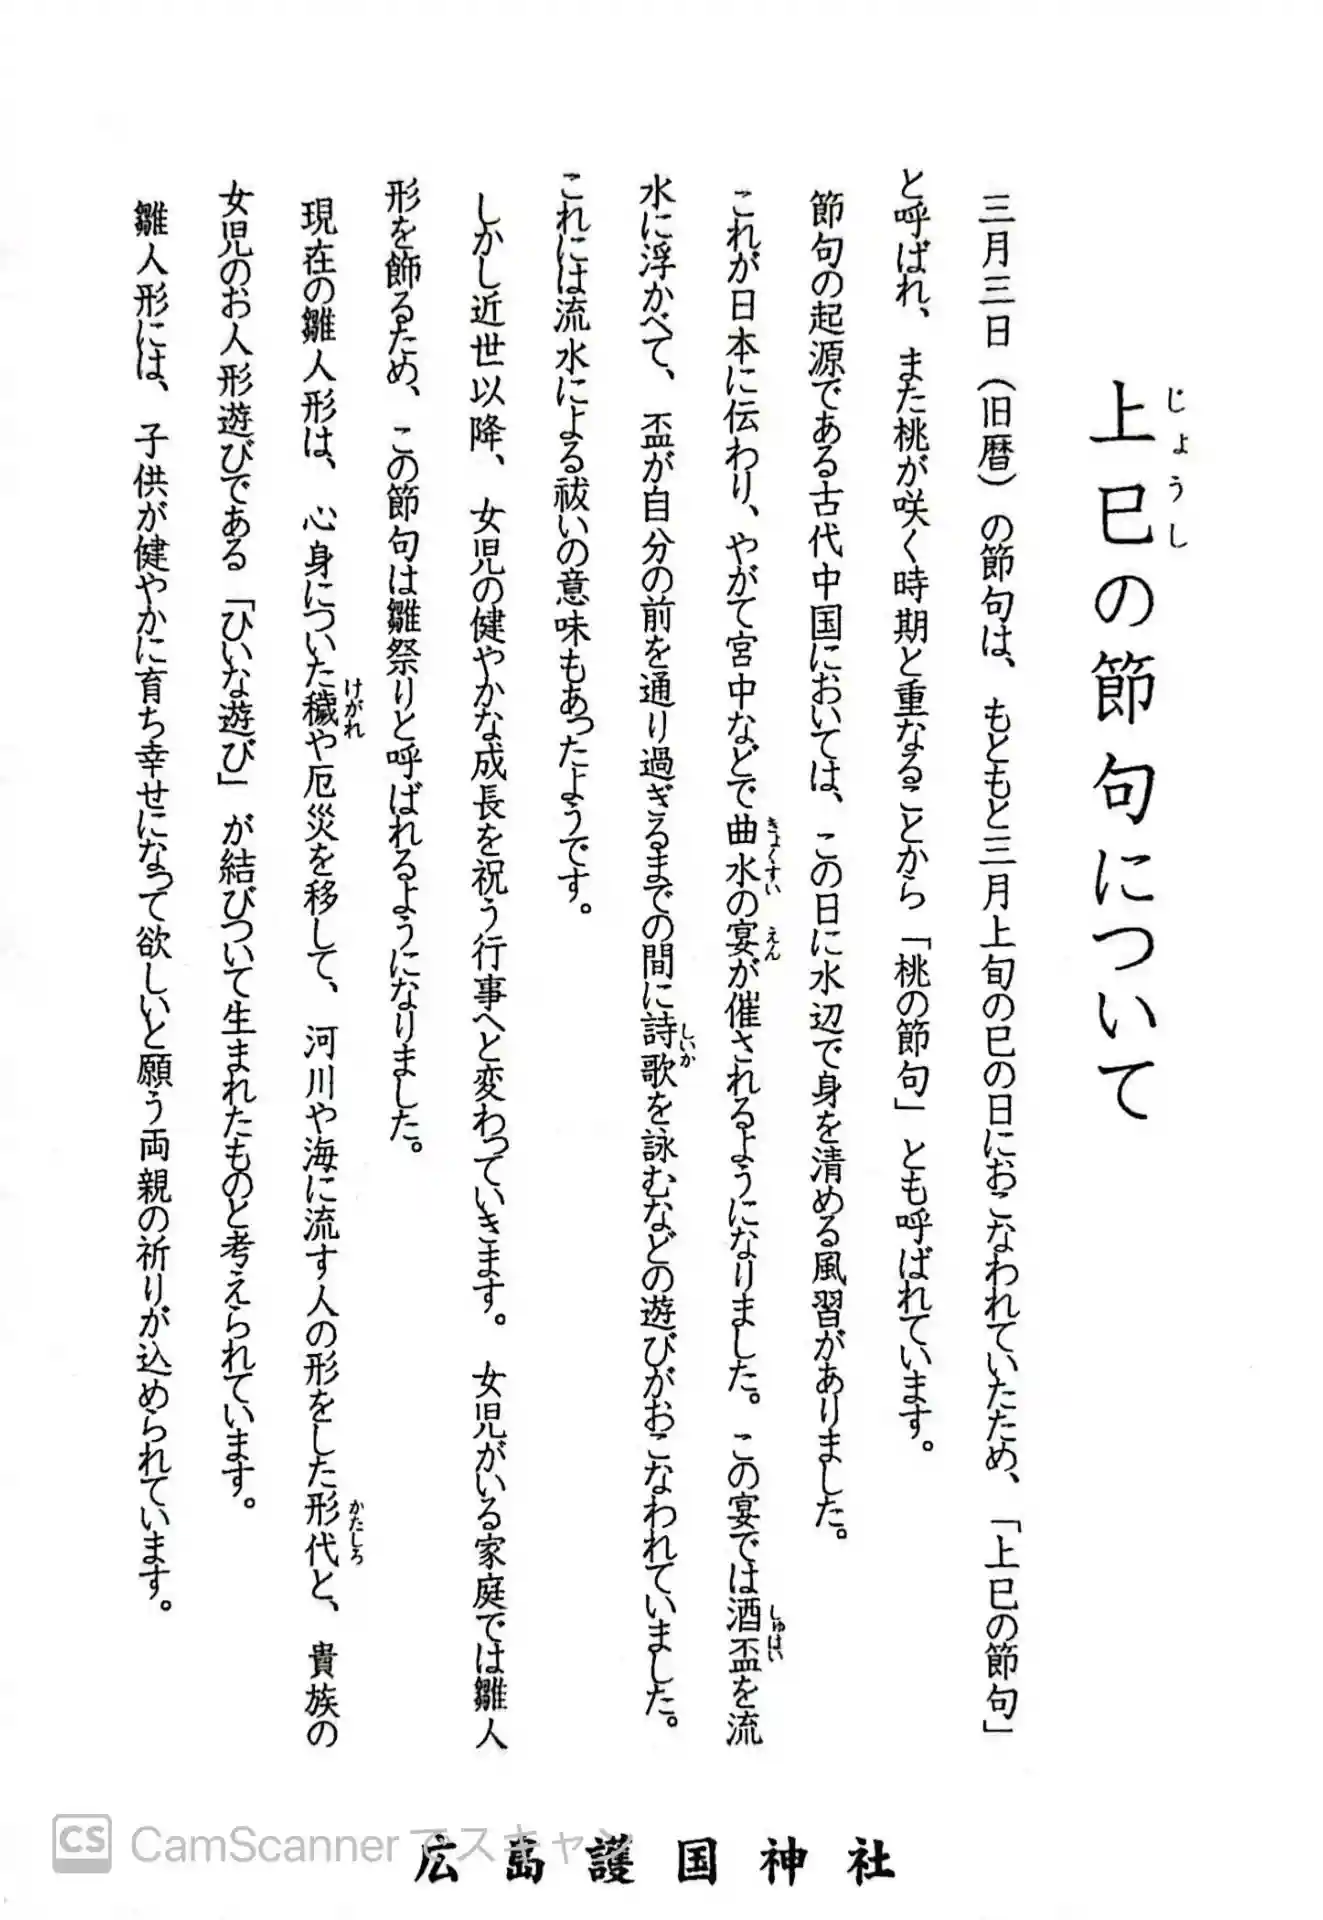 上巳の節句について
じょうし
三月三日（旧暦）の節句は、もともと三月上旬の巳の日におこなわれていたため、「上巳の節句」
と呼ばれ、また桃が咲く時期と重なることから「桃の節句」とも呼ばれています。
節句の起源である古代中国においては、この日に水辺で身を清める風習がありました。
これが日本に伝わり、やがて宮中などで曲水の宴が催されるようになりました。この宴では酒盃を流
きょくすい えん しゅはい
水に浮かべて、盃が自分の前を通り過ぎるまでの間に詩歌を詠むなどの遊びがおこなわれていました。
しいか
これには流水による祓いの意味もあったようです。
しかし近世以降、女児の健やかな成長を祝う行事へと変わっていきます。女児がいる家庭では雛人
形を飾るため、この節句は雛祭りと呼ばれるようになりました。
現在の雛人形は、心身についた穢や厄災を移して、河川や海に流す人の形をした形代と、貴族の
けがれ かたしろ
女児のお人形遊びである「ひいな遊び」が結びついて生まれたものと考えられています。
雛人形には、子供が健やかに育ち幸せになって欲しいと願う両親の祈りが込められています。
広島護国神社
CS CamScanner でスキャン